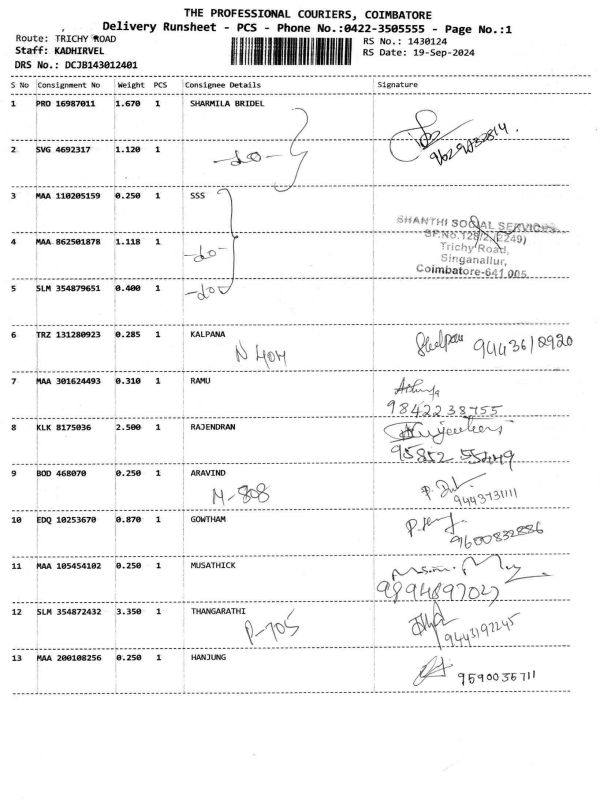 THE PROFESSIONAL COURIERS, COIMBATORE
Delivery Runsheet - PCS - Phone No.:0422-3505555 - Page No.:1
Route: TRICHY ROAD
RS No.: 1430124
Staff: KADHIRVEL
RS Date: 19-Sep-2024
DRS No.: DCJB143012401
S No Consignment No Weight PCS Consignee Details Signature
1 PRO 16987011 1.670 1 SHARMILA BRIDEL
2 SVG 4692317 1.120 1 -do-
3 MAA 110205159 0.250 1 SSS
SHANTHI SOCIAL SERVICES
SF.No.128/2 (2249)
4 MAA 862501878 1.118 1 -do- Trichy Road,
Singanallur,
Coimbatore-641 005.
5 SLM 354879651 0.400 1 -do-
6 TRZ 131280923 0.285 1 KALPANA
N 404
7 MAA 301624493 0.310 1 RAMU
9842238755
8 KLK 8175036 2.500 1 RAJENDRAN
9 BOD 468070 0.250 1 ARAVIND
M-808 9443731111
10 EDQ 10253670 0.870 1 GOWTHAM
9600832886
11 MAA 105454102 0.250 1 MUSATHICK
9894897027
12 SLM 354872432 3.350 1 THANGARATHI
P-705 9443192245
13 MAA 200108256 0.250 1 HANJUNG
9590035711